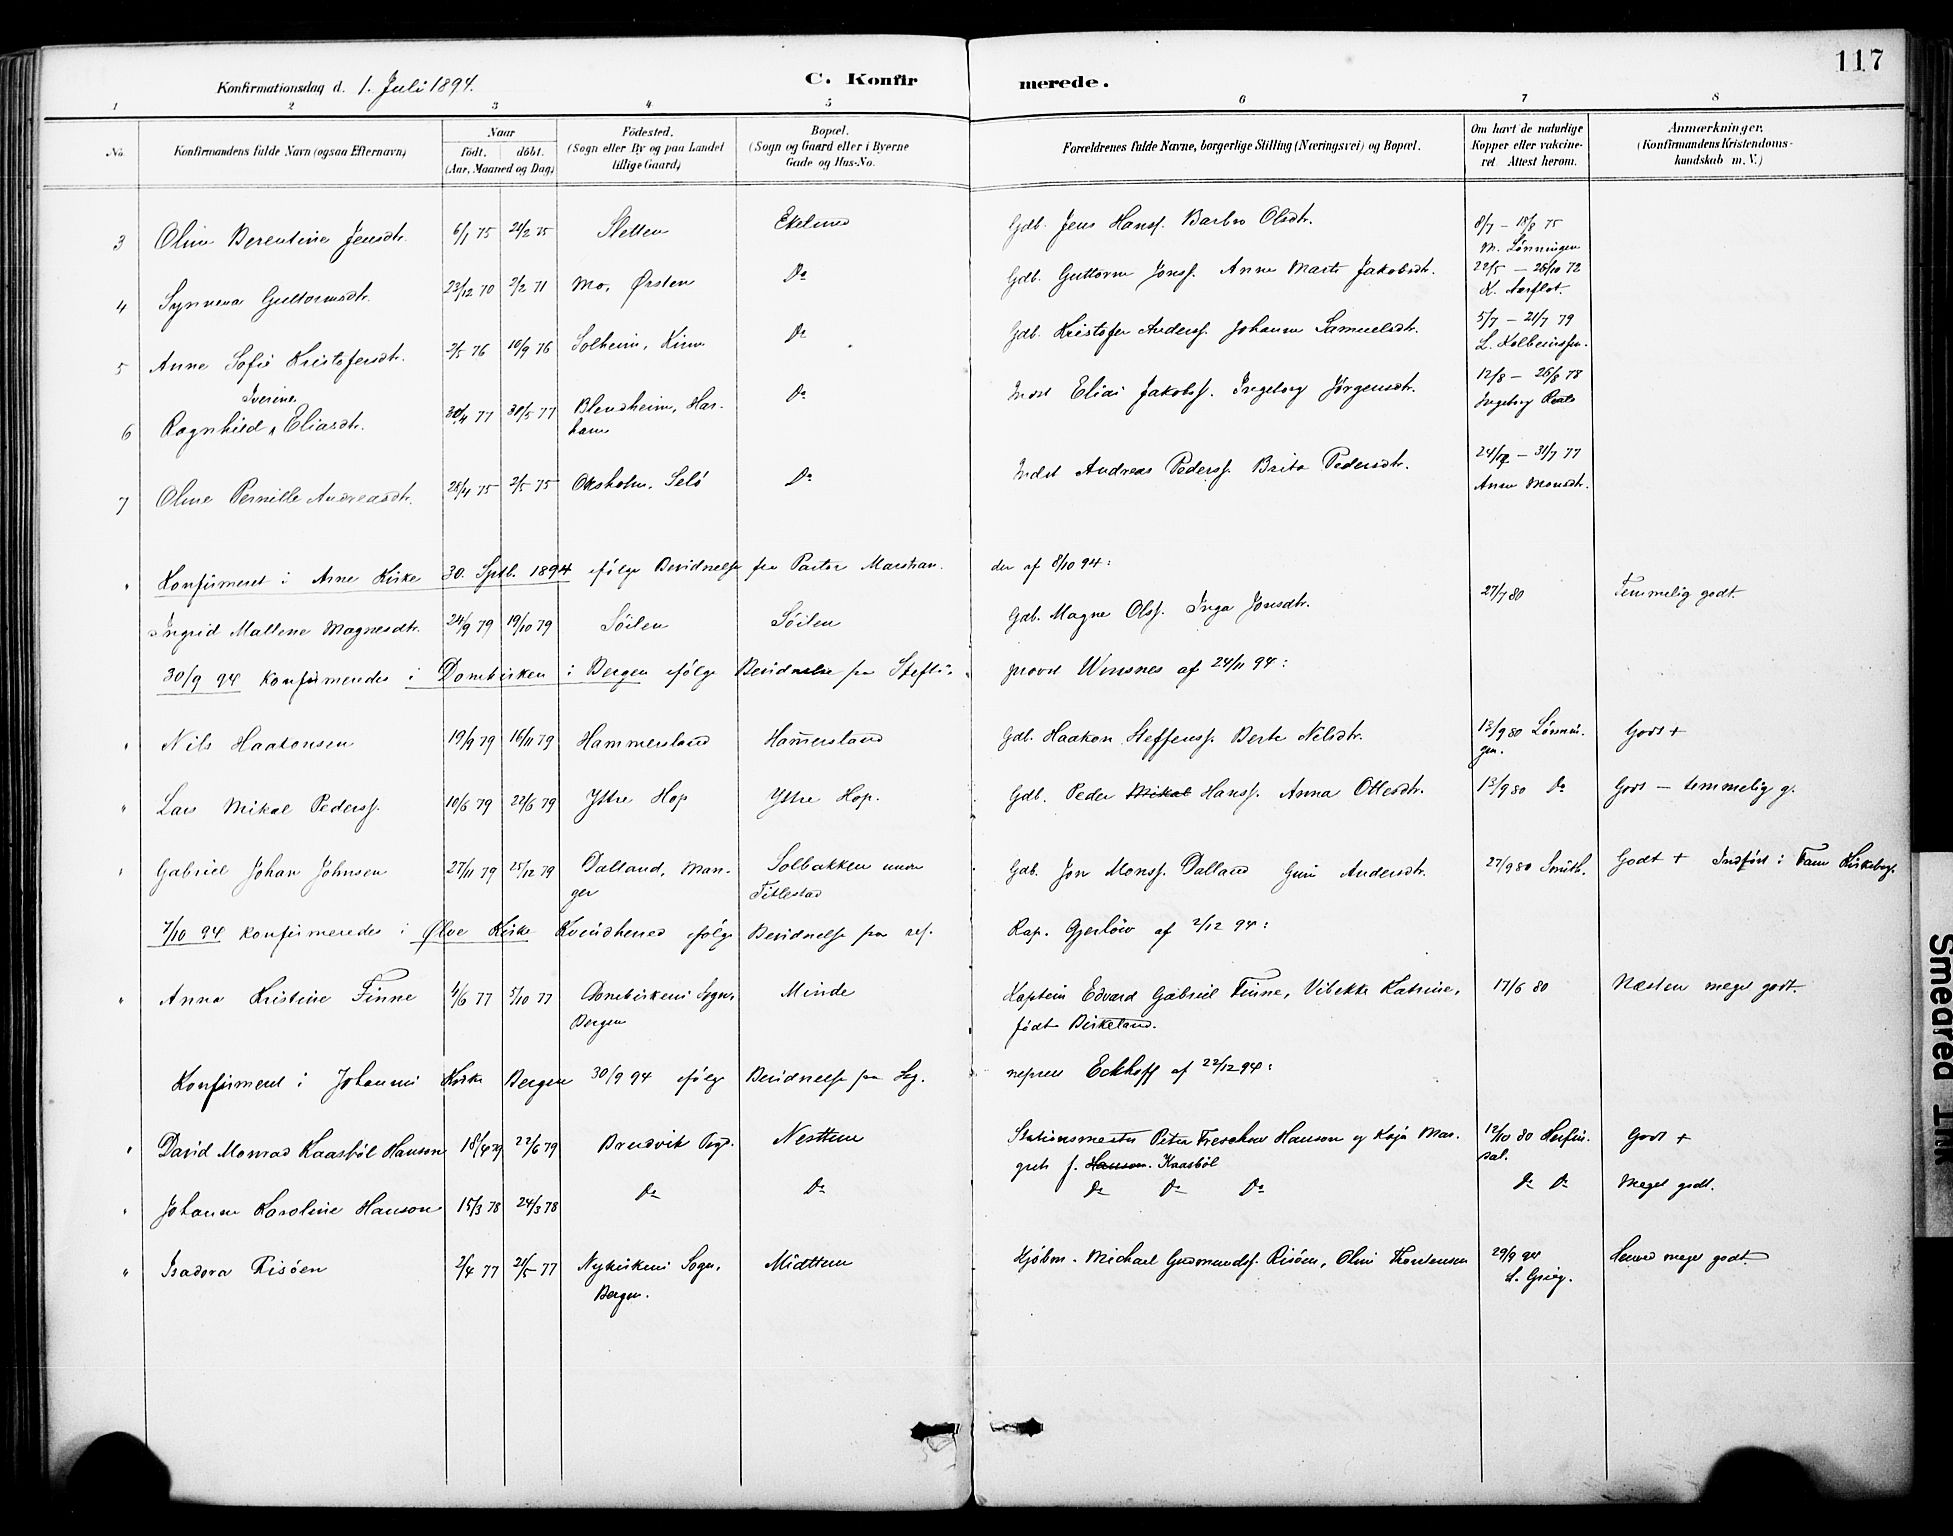 117
Konfirmationsdag d. 1. Juli 1894. C. Konfirmerede.
1 2 3 4 5 6 7 8
No. Konfirmandens fulde Navn (ogsaa Efternavn) Naar født. døbt. (Aar, Maaned og Dag) Fødested. (Sogn eller By og paa Landet tillige Gaard) Bopæl. (Sogn og Gaard eller i Byerne Gade og Hus-No. Forældrenes fulde Navne, borgerlige Stilling (Næringsvei) og Bopæl. Om havt de naturlige Kopper eller vakcineret. Attest herom. Anmærkninger. (Konfirmandens Kristendomskundskab m. V.)
3 Oline Berentine Jensdtr. 6/1 75 21/2 75 Sletten Ekelund Gdb. Jens Hanss. Barbro Olsdtr. 8/7 – 15/8 75
M. Lønningen
4 Synneva Guttormsdtr. 23/12 70 2/2 71 Mo, Ørsten Do Gdb. Guttorm Jonss. Anne Marte Jakobsdtr. 22/5 – 26/10 72
K. Aarflot.
5 Anne Sofie Kristofersdtr. 2/5 76 10/9 76 Solheim, Kinn Do Gdb. Kristofer Anderss. Johanne Samuelsdtr. 5/7 – 21/7 79
L. Kolbeinssen.
Iverine
6 Ragnhild " Eliasdtr. 30/4 77 30/5 77 Blendheim, Har- Do Indst Elias Jakobss. Ingeborg Jørgensdtr. 12/8 – 26/8 78
ham Ingeborg
7 Oline Pernille Andreasdtr. 25/4 75 2/5 75 Oksholm, Selø Do Indst Andreas Pederss. Brita Pedersdtr. 24/7 – 31/7 77
Anne Monsdtr.
" Konfirmeret i Arne Kirke 30. Septb. 1894 ifølge Bevidnelse fra Pastor Marstran- der af 8/10 94:
Ingrid Mallene Magnesdtr. 24/9 79 19/10 79 Søilen Søilen Gdb. Magne Olss. Inga Jonsdtr. 27/7 80 Temmelig godt.
30/9 94 konfirmeredes i Domkirken i Bergen ifølge Bevidnelse fra Stifts- provst Winsnes af 24/11 94:
" Nils Haakonsen 19/9 79 16/11 79 Hammersland Hammersland Gdb. Haakon Steffenss. Berte Nilsdtr. 13/9 80 Lønnin- Godt +
gen.
" Lars Mikal Pederss. 10/6 79 22/6 79 Ytre Hop Ytre Hop. Gdb. Peder Mikal Hanss. Anna Ottesdtr. 13/9 80 Do Godt – temmelig g.
" Gabriel Johan Johnsen 27/11 79 25/12 79 Dalland, Man- Solbakken under Gdb. Jon Monss. Dalland Guri Andersdtr. 27/9 80 Smith. Godt + Indført i Fane Kirkebog.
ger Titlestad
7/10 94 konfirmeredes i Ølve Kirke Kvindherred ifølge Bevidnelse fra res. Kap. Gjerløw af 2/12 94:
" Anna Kristine Finne 1/6 77 5/10 77 Domkirkens Sogn, Minde Kaptein Edvard Gabriel Finne, Vibekke Katrine, 17/6 80 Næsten meget godt.
Bergen født Birkeland.
Konfirmeret i Johannes Kirke Bergen 30/9 94 ifølge Bevidnelse fra Sog- neprest Eckhoff af 22/12 94:
" David Monrad Kaasbøl Hanson 18/4 79 22/6 79 Bruvik Pgd. Nesttun Stationsmester Peter Treschow Hanson og Kaja Mar- 12/10 80 Herfin- Godt +
grete f. Hanson. Kaasbøl dal.
" Johanne Karoline Hanson 15/3 78 24/3 78 Do Do Do Do Do Do Do Meget godt.
" Isadora Risøen 2/4 77 21/5 77 Nykirkens Sogn, Midttun Kjøbm. Michael Gudmunds. Risøen, Oline Thorstensen 29/9 94 meget godt
Bergen. S. Grieg.